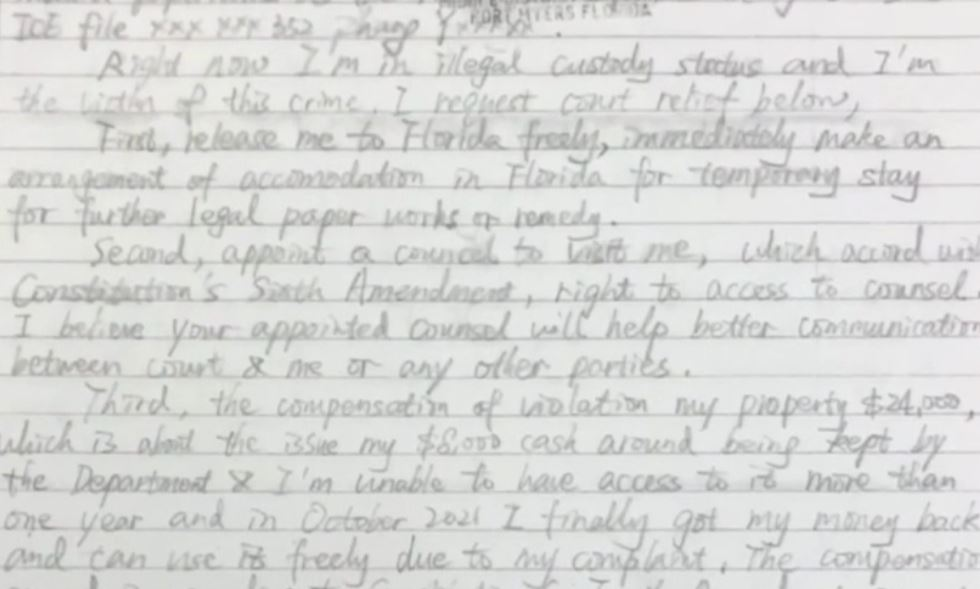 FORT MYERS FLORIDA
ICE file xxx xxx 352, Y
Right now I'm in illegal custody status and I'm
the victim of this crime. I request court relief below,
First, release me to Florida freely, immediately make an
arrangement of accomodation in Florida for temporary stay
for further legal paper works or remedy.
Second, appoint a councel to visit me, which accord
Constitution's Sixth Amendment, right to access to counsel.
I believe your appointed counsel will help better communication
between court & me or any other parties.
Third, the compensation of violation my property $24,000,
which is about the issue my $8,000 cash around being kept by
the Department & I'm unable to have access to it more than
one year and in October 2021 I finally got my money back
and can use it freely due to my complaint. The compensatio